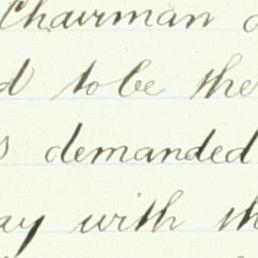 Chairman
to be the
demanded
with